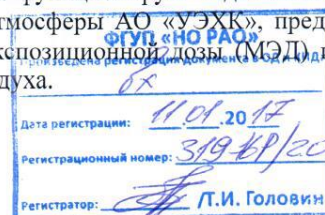 тмосферы АО «УЭХК», пред
ФГУП «НО РАО»
кспозиционной дозы (МЭД)
Произведена регистрация документа в ОД и
духа.
Дата регистрации: 11.01.2017
Регистрационный номер: 319-КР/20
Регистратор: /Т.И. Головин